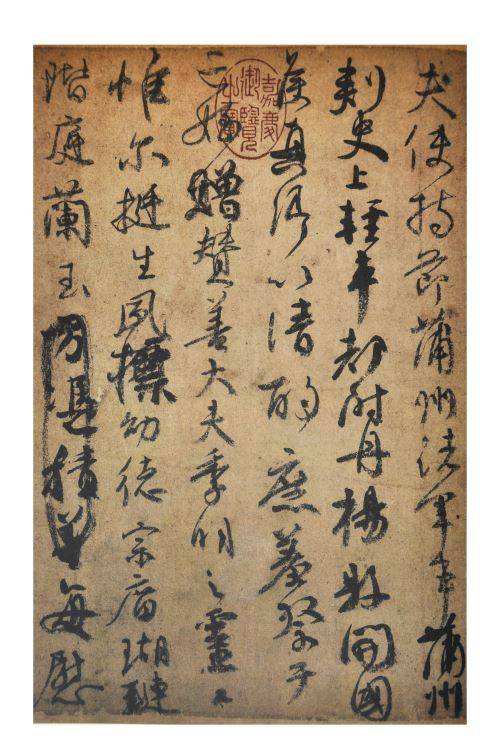 夫使持節蒲州諸軍事蒲州
刺史上輕車都尉丹楊縣開國
侯真卿以清酌庶羞祭于
亡姪贈贊善大夫季明之靈曰
惟爾挺生夙標幼德宗廟瑚璉
階庭蘭玉方憑積善每慰
嘉慶御覽之寶